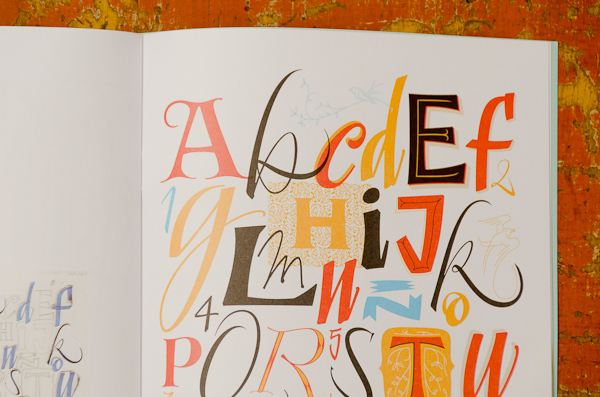 A b c d E f 2
1 g H i J k
L m n o
4 P Q R 5 S T u
d f
k
n o
S u